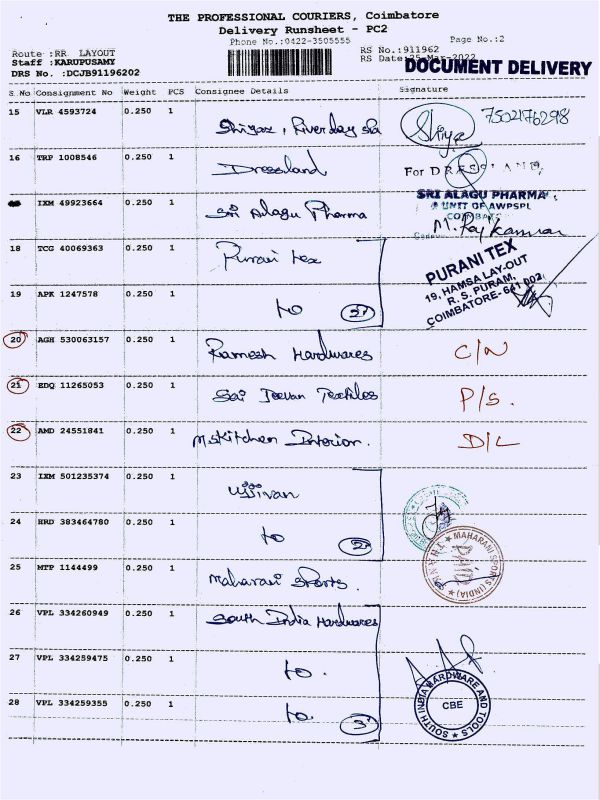 THE PROFESSIONAL COURIERS, Coimbatore
Delivery Runsheet - PC2
Phone No.:0422-3505555
Page No.:2
Route :RR LAYOUT
RS No.:911962
Staff :KARUPUSAMY
RS Date:25-Mar-2022
DOCUMENT DELIVERY
DRS No. :DCJB91196202
S.No Consignment No Weight PCS Consignee Details Signature
15 VLR 4593724 0.250 1 7502176298
16 TRP 1008546 0.250 1 Dressland For DRESSLAND
IXM 49923664 0.250 1 Sri Alagu Pharma SRI ALAGU PHARMA
A UNIT OF AWPSPL
M. Raj Kannan
18 TCG 40069363 0.250 1 Purani tex
PURANI TEX
19, HAMSA LAY-OUT
R. S. PURAM,
COIMBATORE- 641 002
19 APK 1247578 0.250 1 to 2
20 AGH 530063157 0.250 1 Ramesh Hardwares C/N
21 EDQ 11265053 0.250 1 Sai Jeevan Textiles P/S.
22 AMD 24551841 0.250 1 M.S Kitchen Interior. D/L
23 IXM 501235374 0.250 1 Ujjivan
24 HRD 383464780 0.250 1 to 2
25 MTP 1144499 0.250 1 Maharani Sports.
MAHARANI SPORTS (INDIA)
PAID
26 VPL 334260949 0.250 1 South India Hardwares
27 VPL 334259475 0.250 1 to.
28 VPL 334259355 0.250 1 to. 3
SOUTH INDIA HARDWARE AND TOOLS
CBE